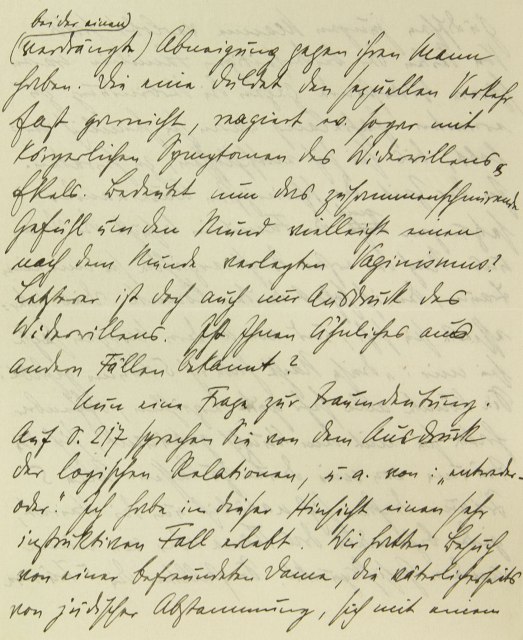 bei der einen
(verdrängte) Abneigung gegen ihren Mann
haben. Die eine duldet den sexuellen Verkehr
fast garnicht, reagiert ev. sogar mit
körperlichen Symptomen des Widerwillens,
Ekels. Bedeutet nun das zusammenschnürende
Gefühl um den Mund vielleicht einen
nach dem Munde verlegten Vaginismus?
Letzterer ist doch auch nur Ausdruck des
Widerwillens. Ist Ihnen Ähnliches aus
andern Fällen bekannt?
Nun eine Frage zur Traumdeutung.
Auf S. 217 sprechen Sie von dem Ausdruck
der logischen Relationen, u. a. von: „entweder-
oder“. Ich habe in dieser Hinsicht einen sehr
instruktiven Fall erlebt. Wir hatten Besuch
von einer befreundeten Dame, die väterlicherseits
von jüdischer Abstammung, sich mit einem